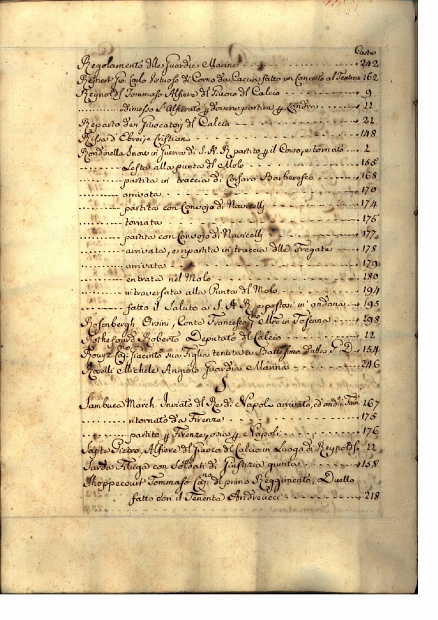 Carte
Regolamento delle Guardie Marine 242
Reinert Gio. Carlo Virtuoso di Corno da Caccia, fatto un Concerto al Teatro 162
Reynolds Tommaso Alfiere del Giuoco del Calcio 9
dimesso l'Alferato p. dover partire p. Londra 11
Reparto dei Giuocatori del Calcio 21
Rissa d'Ebrei, e Cristiani 148
Rondinella Nave in Guerra di S. A. R. partito p. il Corso, e tornato 2
alla punta del Molo 155
partita in traccia di Corsaro Barbaresco 168
arrivata 170
partita con Convojo di Navicelli 174
tornata 175
partita con Convojo di Navicelli 177
arrivata, e ripartita in traccia delle Fregate 178
arrivata 179
entrata nel Molo 180
intraversata alla Punta del Molo 194
fatto il Saluto a S. A. R. 195
Rosenbergh Orsini, Conte Francesco in Toscana 198
Roberto Deputato del Calcio 12
Giacinto sua Figlia tenuta a Battesimo dalla G. D. 154
Rovelli Michele Angiolo Guardia Marina 246
S
Sambuca March. Inviato del Re di Napoli arrivato, ed andò 167
ritornato da Firenze 175
partito p. Firenze, osia p. Napoli 176
Pietro, Alfiere del Giuoco del Calcio in Luogo di Reynolds 12
con Soldati di Giustizia 158
Shoppecourt Tommaso Cap. del primo Reggimento, Duello
fatto con il Tenente Andreucci 218